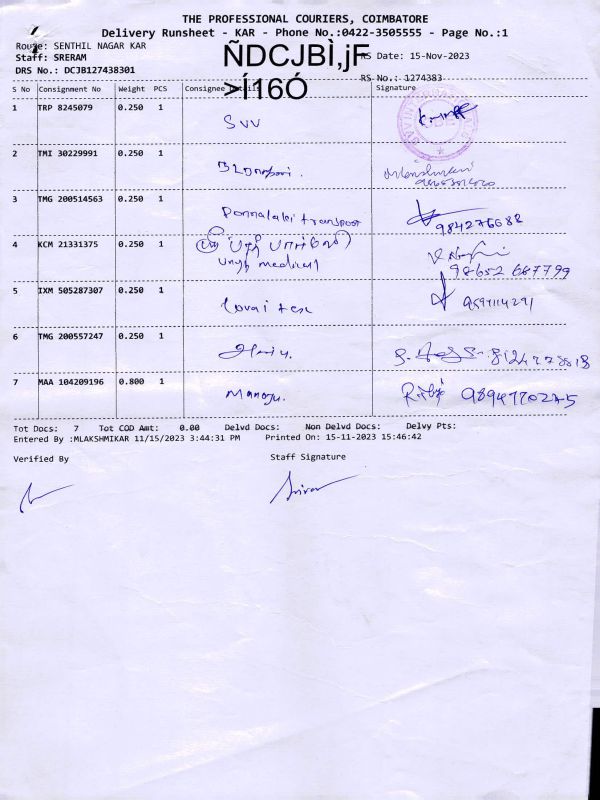 THE PROFESSIONAL COURIERS, COIMBATORE
Delivery Runsheet - KAR - Phone No.:0422-3505555 - Page No.:1
Route: SENTHIL NAGAR KAR
ÑDCJBÌ,jF
RS Date: 15-Nov-2023
Staff: SRERAM
DRS No.: DCJB127438301
>Í16Ó
RS No.: 1274383
S No Consignment No Weight PCS Consignee Details Signature
1 TRP 8245079 0.250 1
SVV
2 TMI 30229991 0.250 1
3 TMG 200514563 0.250 1
transport
984276682
4 KCM 21331375 0.250 1
medical
98652 687799
5 IXM 505287307 0.250 1
Covai tex
6 TMG 200557247 0.250 1
7 MAA 104209196 0.800 1
Manoju.
Tot Docs: 7 Tot COD Amt: 0.00 Delvd Docs: Non Delvd Docs: Delvy Pts:
Entered By :MLAKSHMIKAR 11/15/2023 3:44:31 PM Printed On: 15-11-2023 15:46:42
Verified By Staff Signature